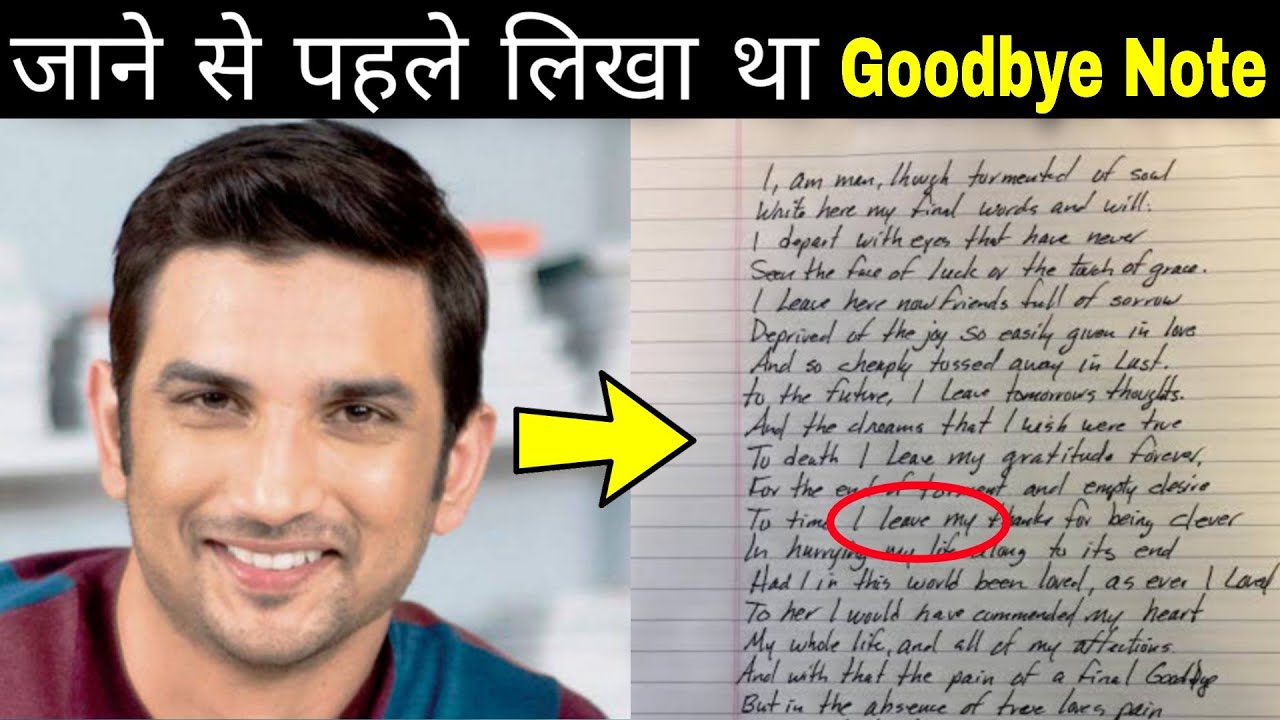 जाने से पहले लिखा था Goodbye Note
I, am man, though tormented of soul
White here my final words and will:
I depart with eyes that have never
Seen the face of Luck or the touch of grace.
I Leave here now friends full of sorrow
Deprived of the joy so easily given in love
And so cheaply tossed away in Lust.
to the future, I Leave tomorrows thoughts.
And the dreams that I wish were true
To death I Leave my gratitude forever,
For the end of torment and empty desire
To time I leave my thanks for being clever
In hurrying my life along to its end
Had I in this world been loved, as ever I Loved
To her I would have commended my heart
My whole life, and all of my affections.
And with that the pain of a final Goodbye
But in the absence of true loves pain